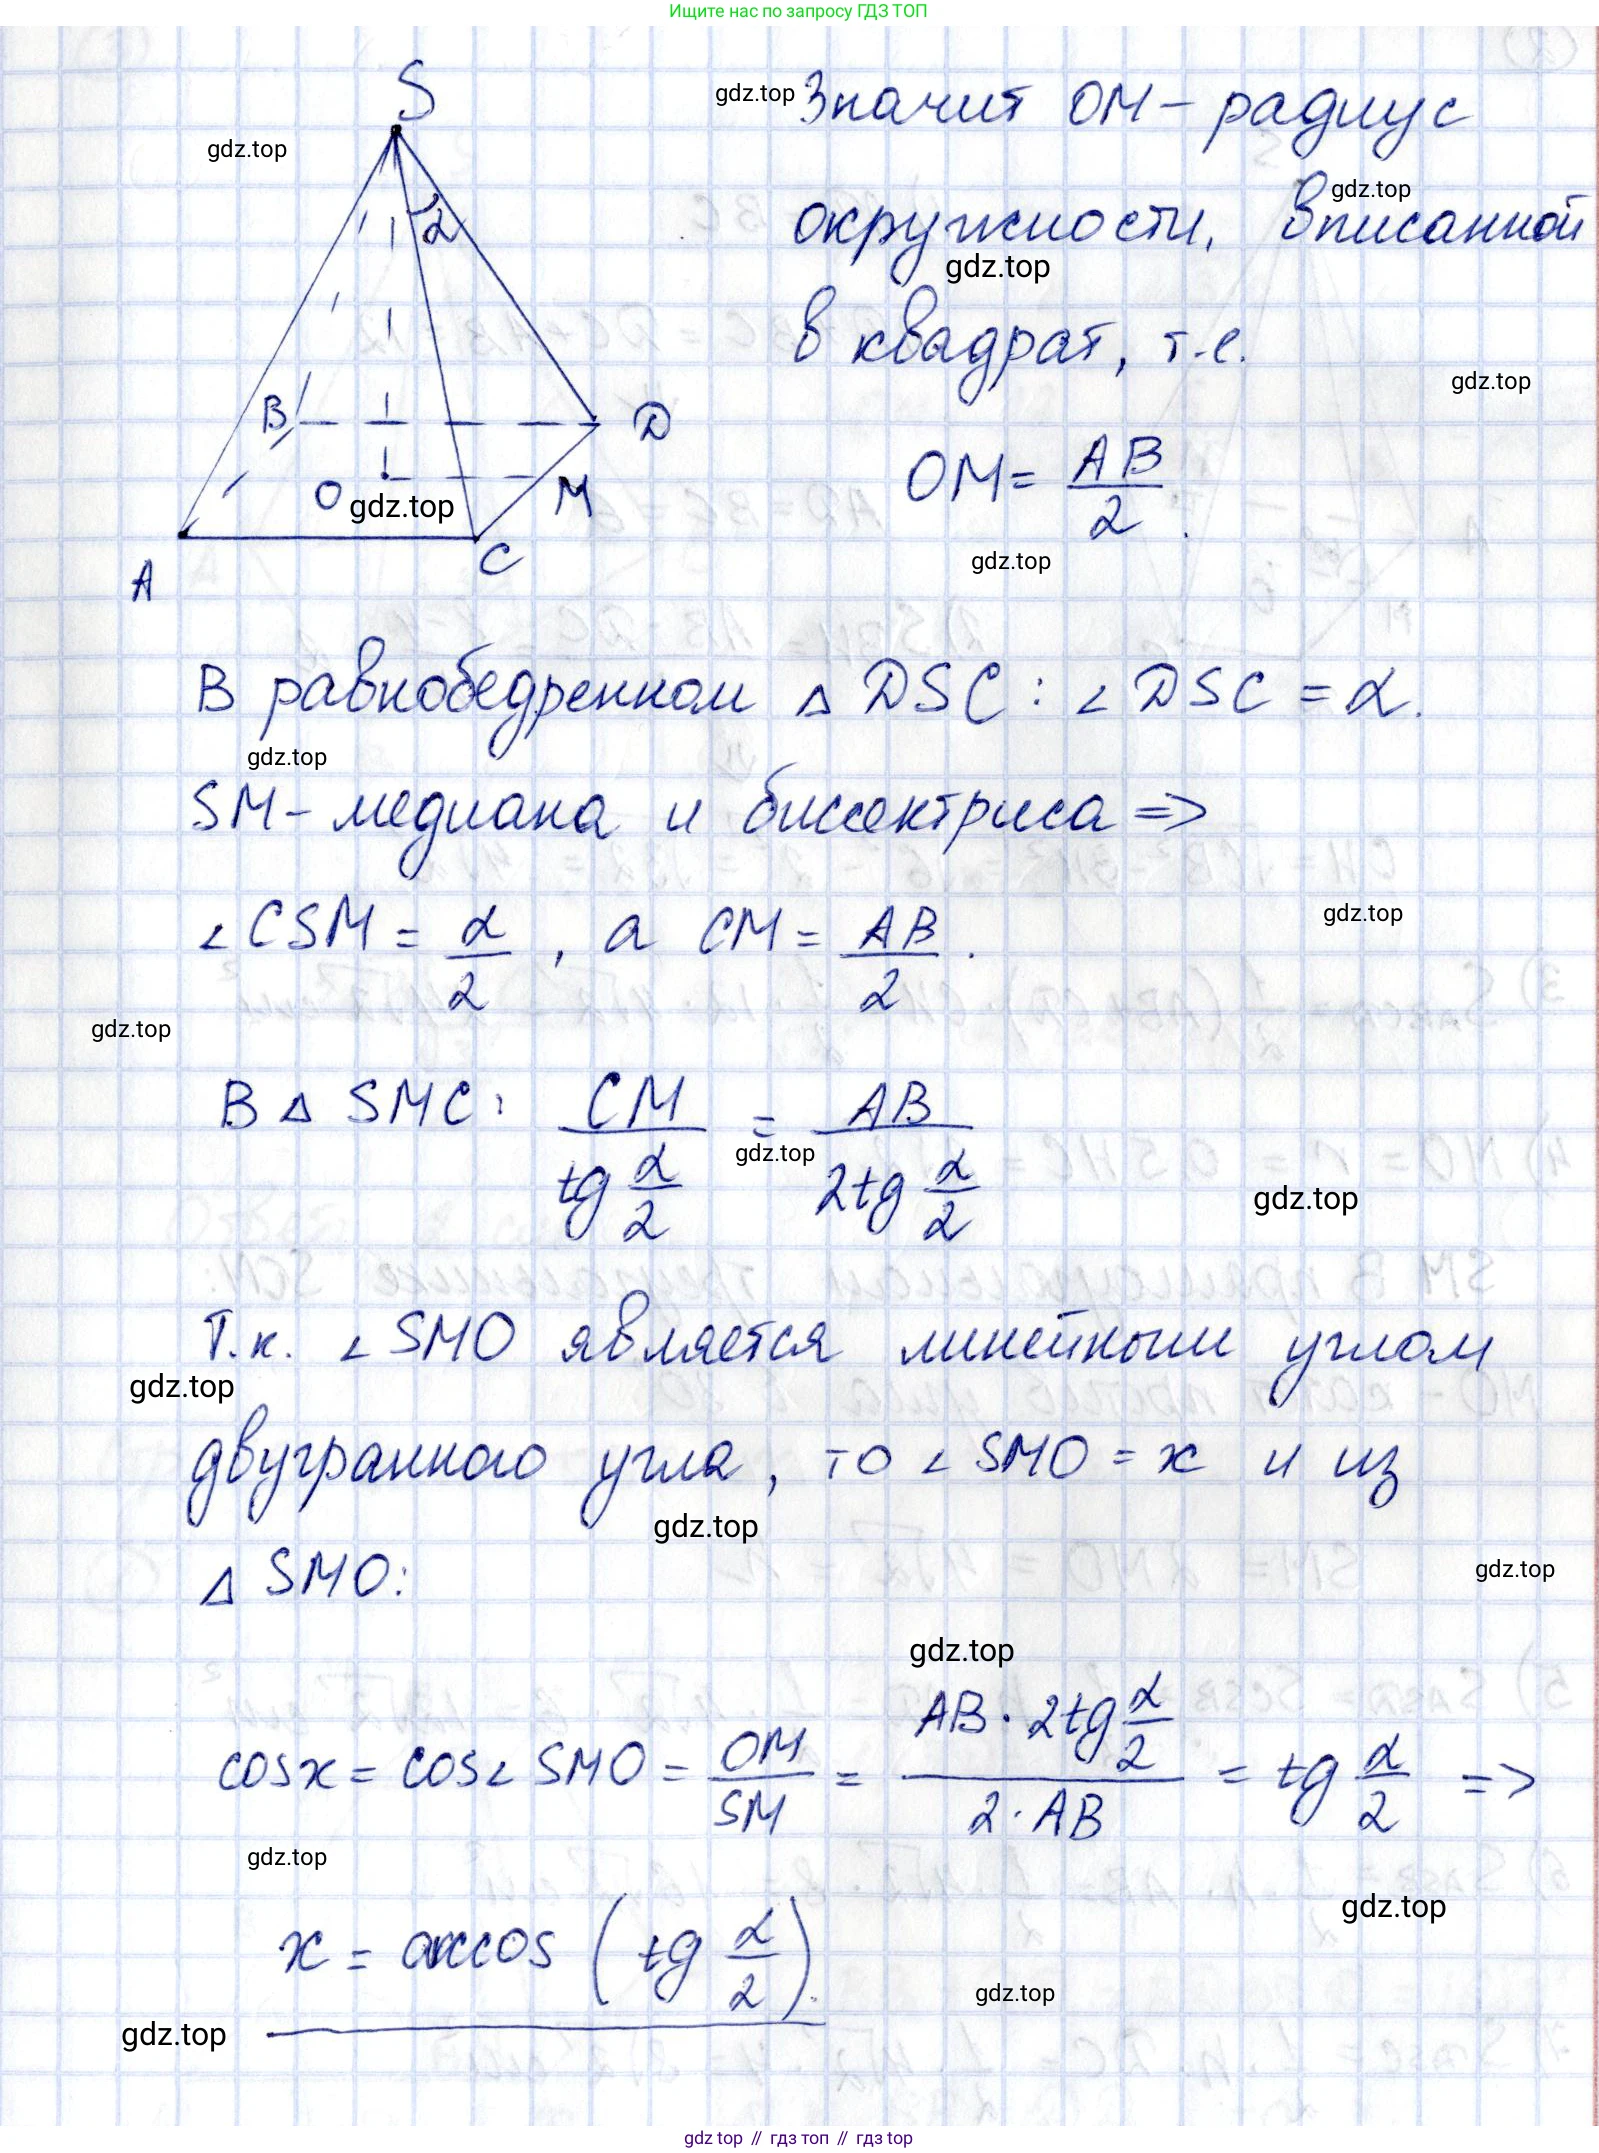 Ищите нас по запросу ГДЗ ТОП
S
α
B
D
O
M
A
C
gdz.top
gdz.top
Значит OM – радиус
gdz.top
окружности, вписанной
gdz.top
в квадрат, т.е.
gdz.top
OM = AB/2.
gdz.top
gdz.top
В равнобедренном △ DSC : ∠ DSC = α.
gdz.top
SM – медиана и биссектриса =>
∠ CSM = α/2, а CM = AB/2.
gdz.top
gdz.top
В △ SMC: CM/tg α/2 = AB/2tg α/2
gdz.top
gdz.top
Т.к. ∠ SMO является линейным углом
gdz.top
двугранного угла, то ∠ SMO = x и из
gdz.top
△ SMO:
gdz.top
gdz.top
cos x = cos ∠ SMO = OM/SM = AB · 2tg α/2 / 2 · AB = tg α/2 =>
gdz.top
gdz.top
x = arccos (tg α/2).
gdz.top
gdz.top
gdz top // гдз топ // gdz top